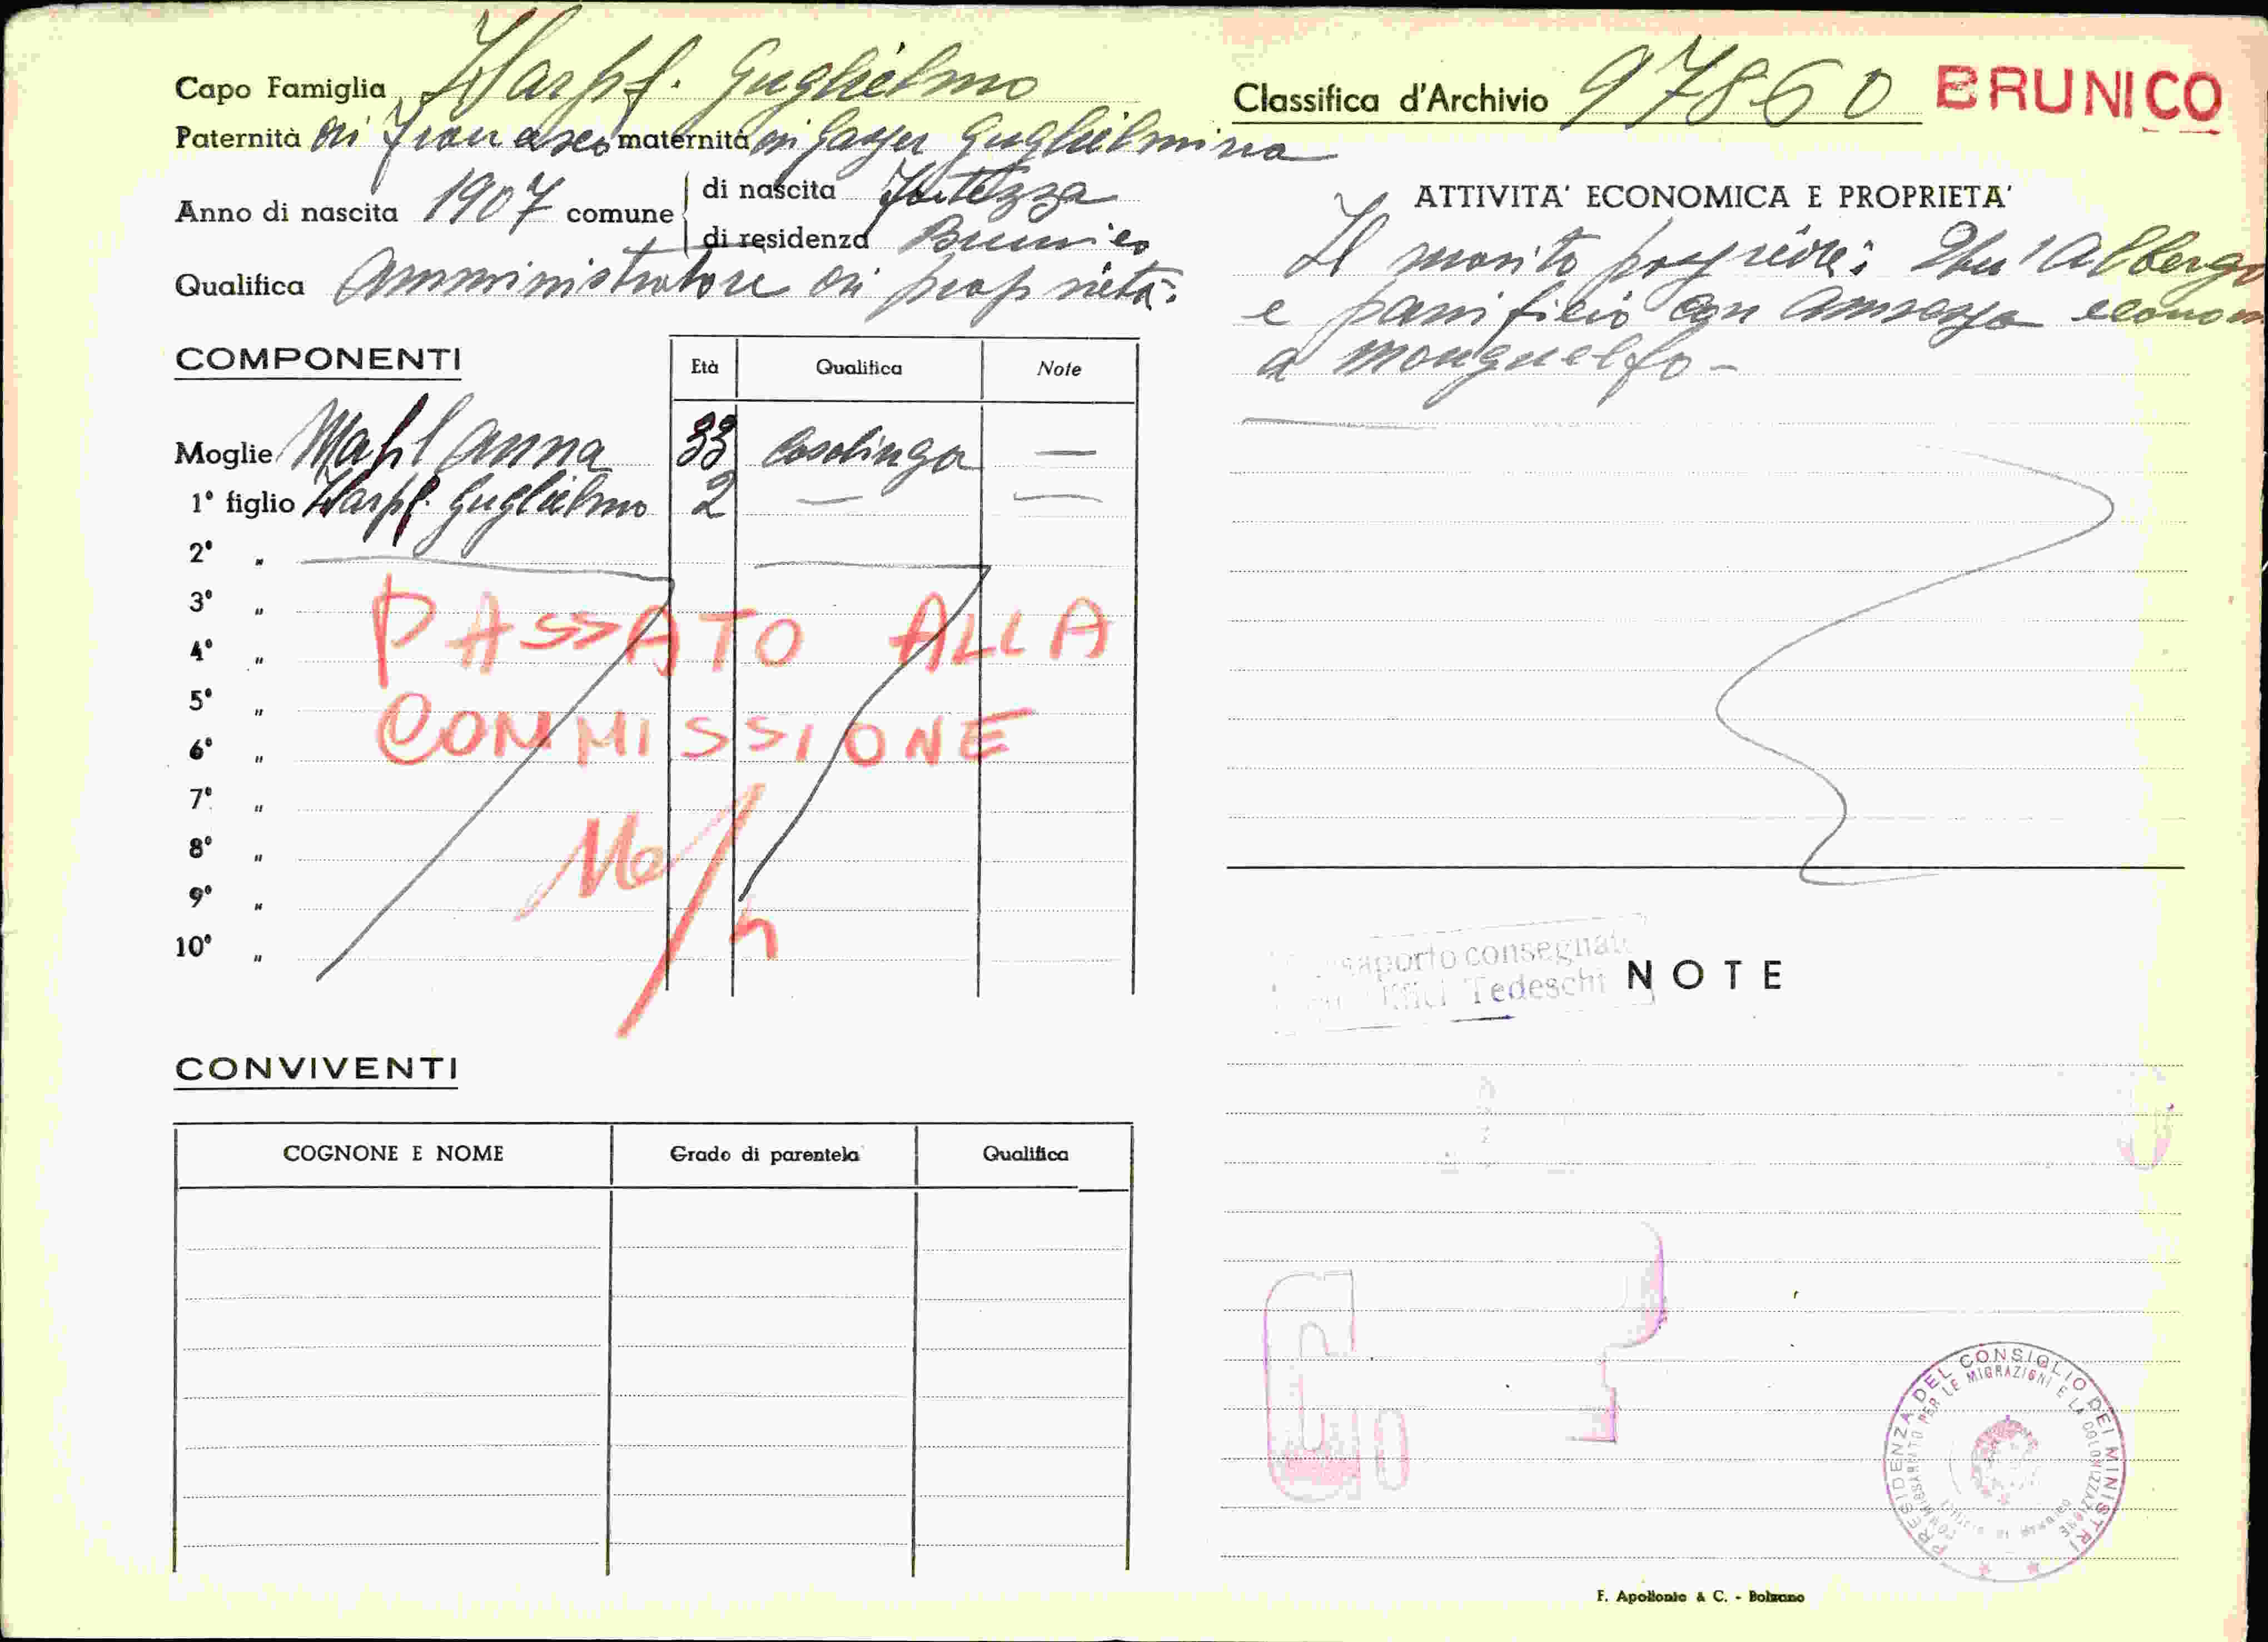 Capo Famiglia Harpf. Guglielmo
Paternità di Francesco maternità di Gasser Guglielmina
Anno di nascita 1907 comune di nascita Fortezza
di residenza Brunico
Qualifica Amministratore di proprietà.
COMPONENTI
Età Qualifica Note
Moglie Mahl Anna 33 Casalinga —
1° figlio Harpf. Guglielmo 2 — —
2° „
3° „
4° „
5° „
6° „
7° „
8° „
9° „
10° „
PASSATO ALLA
COMMISSIONE
CONVIVENTI
COGNONE E NOME Grado di parentela Qualifica
Classifica d'Archivio 97860 BRUNICO
ATTIVITA' ECONOMICA E PROPRIETA'
Il marito possiede: Albergo
e panificio con annessa econom
a Monguelfo -
consegnat
Uffici Tedeschi
NOTE
PRESIDENZA DEL CONSIGLIO DEI MINISTRI
COMMISSARIATO PER LE MIGRAZIONI E LA COLONIZZAZIONE
F. Apollonio & C. - Bolzano